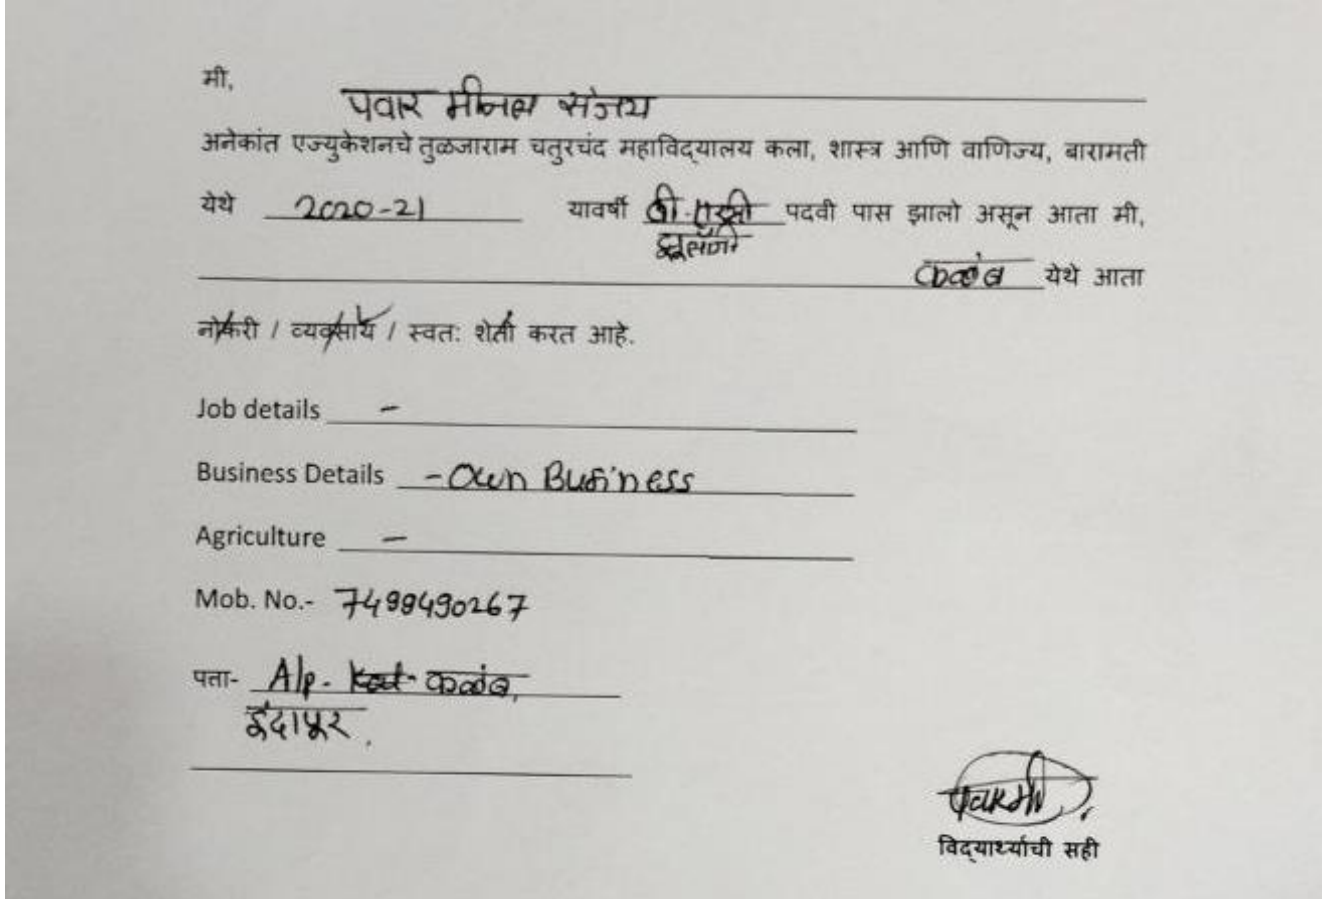 मी,
पवार मीनल संजय
अनेकांत एज्युकेशनचे तुळजाराम चतुरचंद महाविद्यालय कला, शास्त्र आणि वाणिज्य, बारामती
येथे 2020-21 यावर्षी बी.एस्सी पदवी पास झालो असून आता मी,
झूलॉजी
कळंब येथे आता
नोकरी / व्यवसाय / स्वतः शेती करत आहे.
Job details -
Business Details - Own Business
Agriculture -
Mob. No.- 7499490267
पत्ता- A/p. कळंब,
इंदापूर.
पवार मी
विद्यार्थ्याची सही